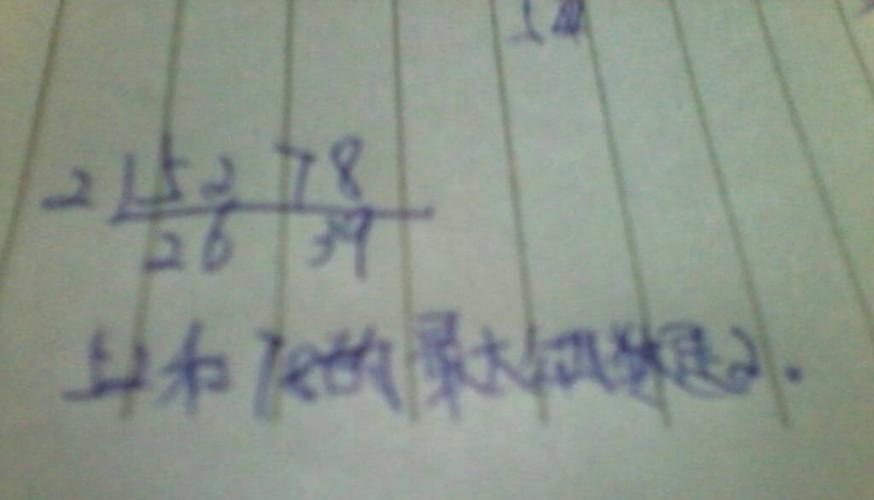 2 52 78
26 39
52和78的最大公因数是2.